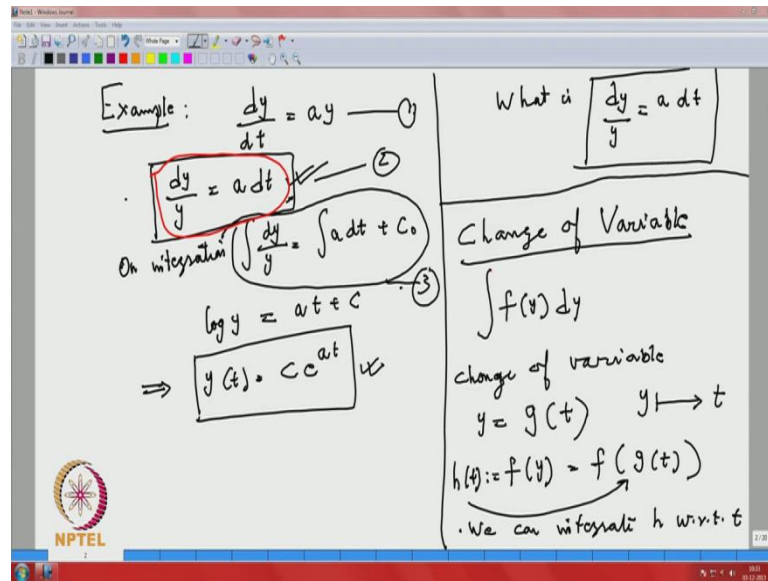 Note1 - Windows Journal
File Edit View Insert Actions Tools Help
Whole Page
B I
Example : dy/dt = ay —— ①
dy/y = a dt —— ②
On integration ∫ dy/y = ∫ a dt + C₀ —— ③
log y = at + C
⇒ y(t) = C e^{at}
What is dy/y = a dt
Change of Variable
∫ f(y) dy
change of variable
y = g(t) y ↦ t
h(t) := f(y) = f(g(t))
. We can integrate h w.r.t. t
NPTEL
2
2/20
10:33
03-12-2013